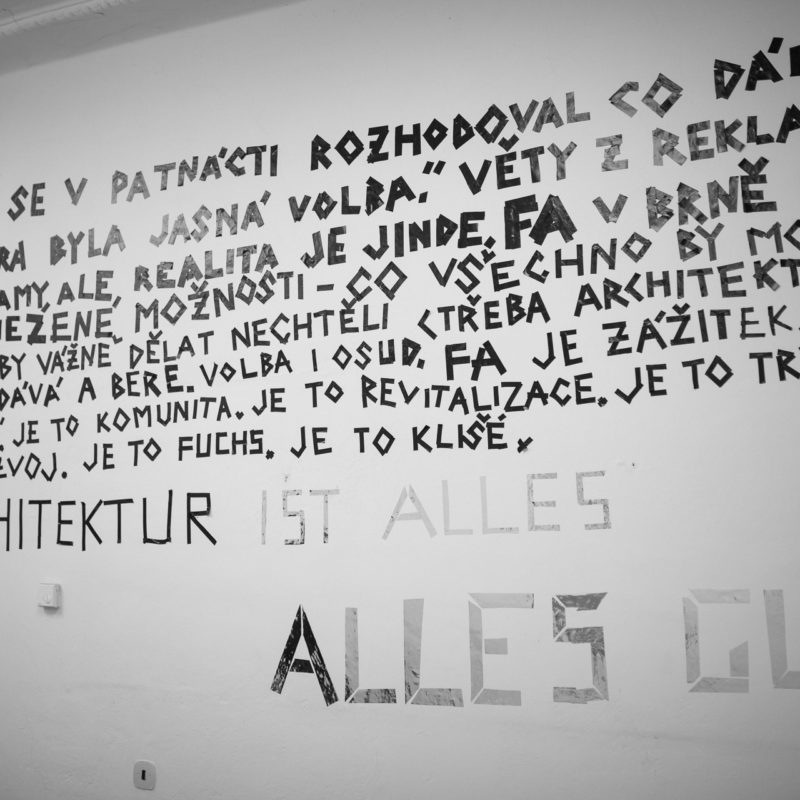 SE V PATNÁCTI ROZHODOVAL CO DÁ
RA BYLA JASNÁ VOLBA.“ VĚTY Z REKLA
AMY, ALE, REALITA JE JINDE. FA V BRNĚ
JEŽENÉ MOŽNOSTI – CO VŠECHNO BY MO
BY VÁŽNĚ DĚLAT NECHTĚLI (TŘEBA ARCHITEKT
DÁVÁ A BERE. VOLBA I OSUD. FA JE ZÁŽITEK.
JE TO KOMUNITA. JE TO REVITALIZACE. JE TO TR
ZVOJ. JE TO FUCHS. JE TO KLIŠÉ.
HITEKTUR IST ALLES
ALLES GU